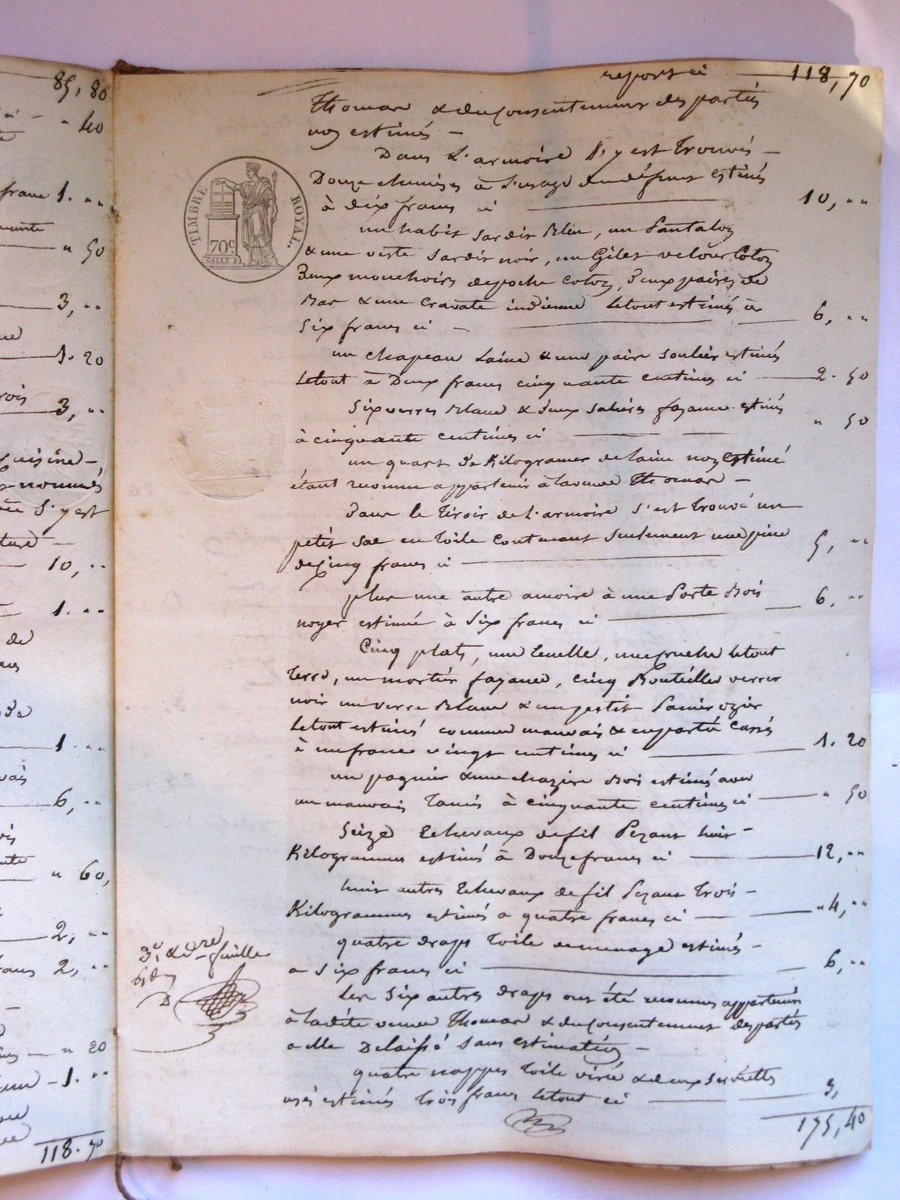 85, 80
" 40
franc 1. "
" 50
3, "
1. 20
3, "
Cuisine
nommés
s'y est
10, "
1. "
de
1. "
6, "
" 60,
2, "
2, "
" 20
1. "
118. 70
report ci 118, 70
Thomas & du Consentement des partis
non estimés —
Dans L'armoire S'y est trouvés —
Douze chemises à L'usage du défunt estimés
à dix francs ci 10, "
un habit sardir Bleu, un Pantalon
& une veste sardir noir, un Gilet velour Coton
Deux mouchoirs de poche coton, Deux paires de
Bas & une Cravate indienne le tout estimés à
Six francs ci 6, "
un chapeau Laine & une paire souliers estimés
le tout à Deux francs cinquante centimes ci 2. 50
Six verres Blanc & Deux Salières fayance estimés
à cinquante centimes ci " 50
un quart de Kilogrames de laine non estimé
étant reconnu appartenir à la veuve Thomas —
Dans le tiroir de L'armoire s'est trouvé un
petit sac en toile contenant seulement une pièce
de Cinq francs ci 5, "
plus une autre armoire à une Porte Bois
noyer estimée à Six francs ci 6. "
Cinq plats, une , une cruche le tout
terre, un mortier fayance, cinq Bouteilles verre
noir un verre Blanc & un petit Panier ozier
le tout estimés comme mauvais & en partie Cassés
à un franc vingt centimes ci 1. 20
un & une Bois estimés avec
un mauvais tamis à cinquante centimes ci " 50
Seize Echevaux de fil Pezant huit —
Kilogrammes estimés à Douze francs ci 12, "
huit autres Echevaux de fil Pezant trois —
Kilogrammes estimés à quatre francs ci " 4, "
quatre draps toile de ménage estimés —
à Six francs ci 6, "
Les Six autres draps ont été reconnus appartenir
à la dite veuve Thomas & du Consentement des partis
à elle Délaissé sans estimation —
quatre nappes toile & deux serviettes
usés estimés trois francs le tout ci 3,
175, 40
TIMBRE ROYAL
70 c
3e & dre feuille